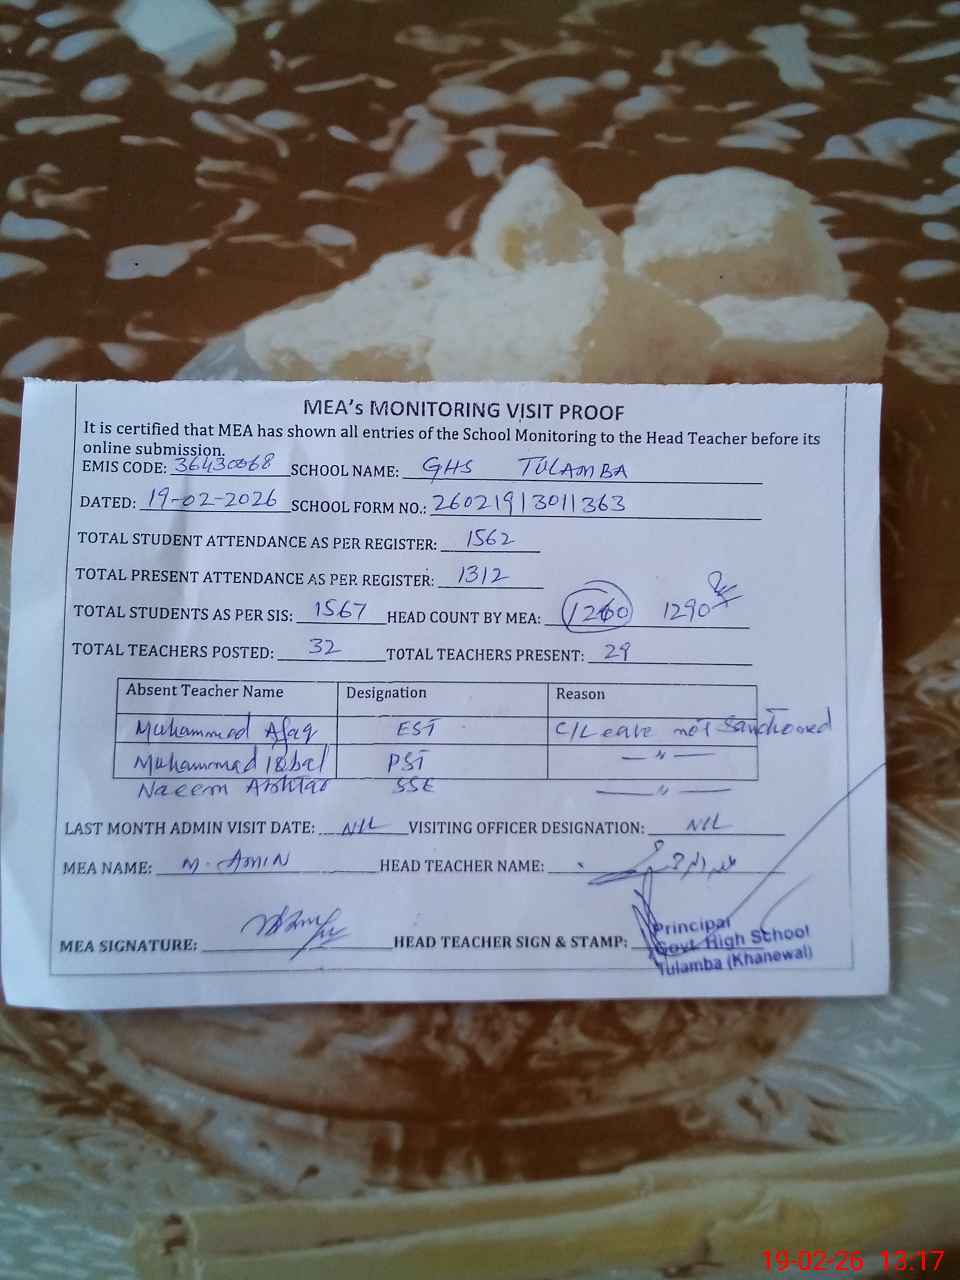 MEA's MONITORING VISIT PROOF
It is certified that MEA has shown all entries of the School Monitoring to the Head Teacher before its
online submission.
EMIS CODE: 36430068 SCHOOL NAME: GHS TULAMBA
DATED: 19-02-2026 SCHOOL FORM NO.: 26021913011363
TOTAL STUDENT ATTENDANCE AS PER REGISTER: 1562
TOTAL PRESENT ATTENDANCE AS PER REGISTER: 1312
TOTAL STUDENTS AS PER SIS: 1567 HEAD COUNT BY MEA: 1260 1290
TOTAL TEACHERS POSTED: 32 TOTAL TEACHERS PRESENT: 29
Absent Teacher Name Designation Reason
Muhammad Afaq EST C/Leave not Sanctioned
Muhammad Iqbal PST —"—
Naeem SSE —"—
LAST MONTH ADMIN VISIT DATE: NIL VISITING OFFICER DESIGNATION: NIL
MEA NAME: M. AMIN HEAD TEACHER NAME:
MEA SIGNATURE: HEAD TEACHER SIGN & STAMP:
Principal
Govt. High School
Tulamba (Khanewal)
19-02-26 13:17